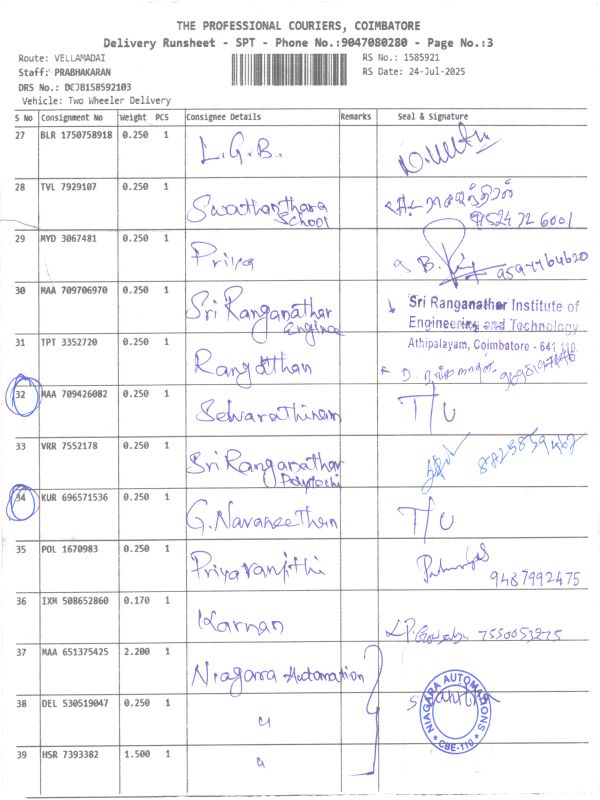 THE PROFESSIONAL COURIERS, COIMBATORE
Delivery Runsheet - SPT - Phone No.:9047080280 - Page No.:3
Route: VELLAMADAI
Staff: PRABHAKARAN
DRS No.: DCJB158592103
Vehicle: Two Wheeler Delivery
RS No.: 1585921
RS Date: 24-Jul-2025
S No Consignment No Weight PCS Consignee Details Remarks Seal & Signature
27 BLR 1750758918 0.250 1 L.G.B.
28 TVL 7929107 0.250 1 Swathanthara
School 95247 26001
29 MYD 3067481 0.250 1 Priya B.
30 MAA 709706970 0.250 1 Sri Ranganathar Sri Ranganathar Institute of
Engine Engineering and Technology
Athipalayam, Coimbatore - 641 110.
31 TPT 3352720 0.250 1 Ranganathan D.
32 MAA 709426082 0.250 1 Selvarathinam T/U
33 VRR 7552178 0.250 1 Sri Ranganathar
Polytechi
34 KUR 696571536 0.250 1 G.Navaneethan T/U
35 POL 1670983 0.250 1 Priyaranjithi 9487992475
36 IXM 508652860 0.170 1 Karnan 7550053275
37 MAA 651375425 2.200 1 Niagara Automation
38 DEL 530519047 0.250 1 "
NIAGARA AUTOMATIONS
CBE-110
39 HSR 7393382 1.500 1 "